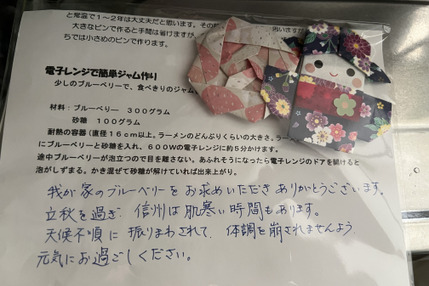 と常温で1～2年は大丈夫だと思います。その
大きなビンで作ると手間は省けますが
ちでは小さめのビンで作ります。
電子レンジで簡単ジャム作り
少しのブルーベリーで、食べきりのジャム
材料：ブルーベリー 300グラム
砂糖 100グラム
耐熱の容器（直径16cm以上。ラーメンのどんぶりくらいの大きさ。
にブルーベリーと砂糖を入れ、600Wの電子レンジに約5分かけます。
途中ブルーベリーが泡立つので目を離さない。あふれそうになったら電子レンジのドアを開けると
泡がしずまる。かき混ぜて砂糖が解けていれば出来上がり。
我が家のブルーベリーをお求めいただきありがとうございます。
立秋を過ぎ、信州は肌寒い時間もあります。
天候不順に振りまわされて、体調を崩されませんよう
元気にお過ごしください。